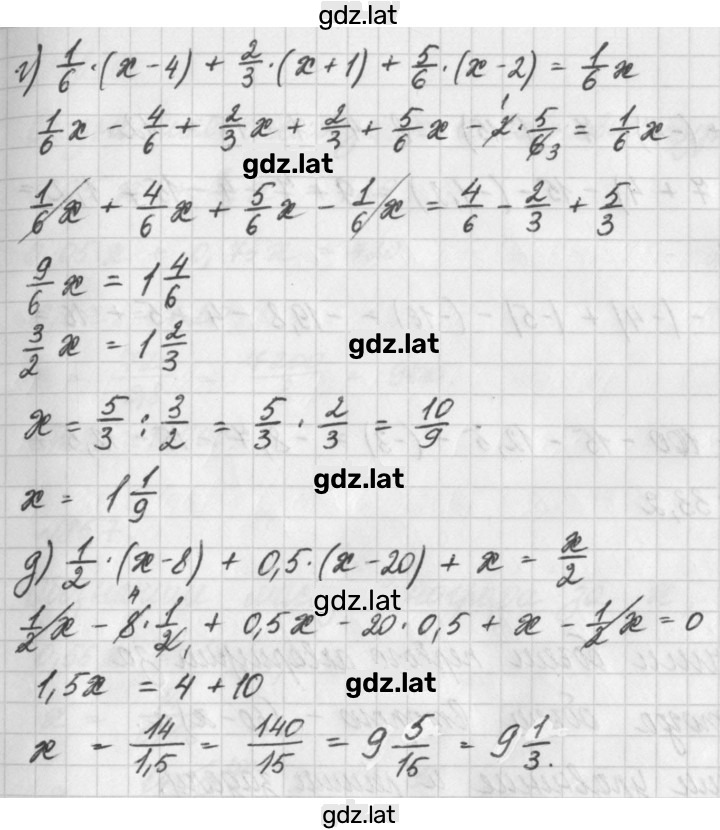 gdz.lat
г) 1/6 · (x − 4) + 2/3 · (x + 1) + 5/6 · (x − 2) = 1/6 x
1/6 x − 4/6 + 2/3 x + 2/3 + 5/6 x − 2 · 5/6 = 1/6 x
1 3
gdz.lat
1/6 x + 4/6 x + 5/6 x − 1/6 x = 4/6 − 2/3 + 5/3
9/6 x = 1 4/6
3/2 x = 1 2/3
gdz.lat
x = 5/3 : 3/2 = 5/3 · 2/3 = 10/9
gdz.lat
x = 1 1/9
д) 1/2 · (x − 8) + 0,5 · (x − 20) + x = x/2
gdz.lat
1/2 x − 8 · 1/2 + 0,5x − 20 · 0,5 + x − 1/2 x = 0
4 1
1,5x = 4 + 10
gdz.lat
x = 14/1,5 = 140/15 = 9 5/15 = 9 1/3.
gdz.lat